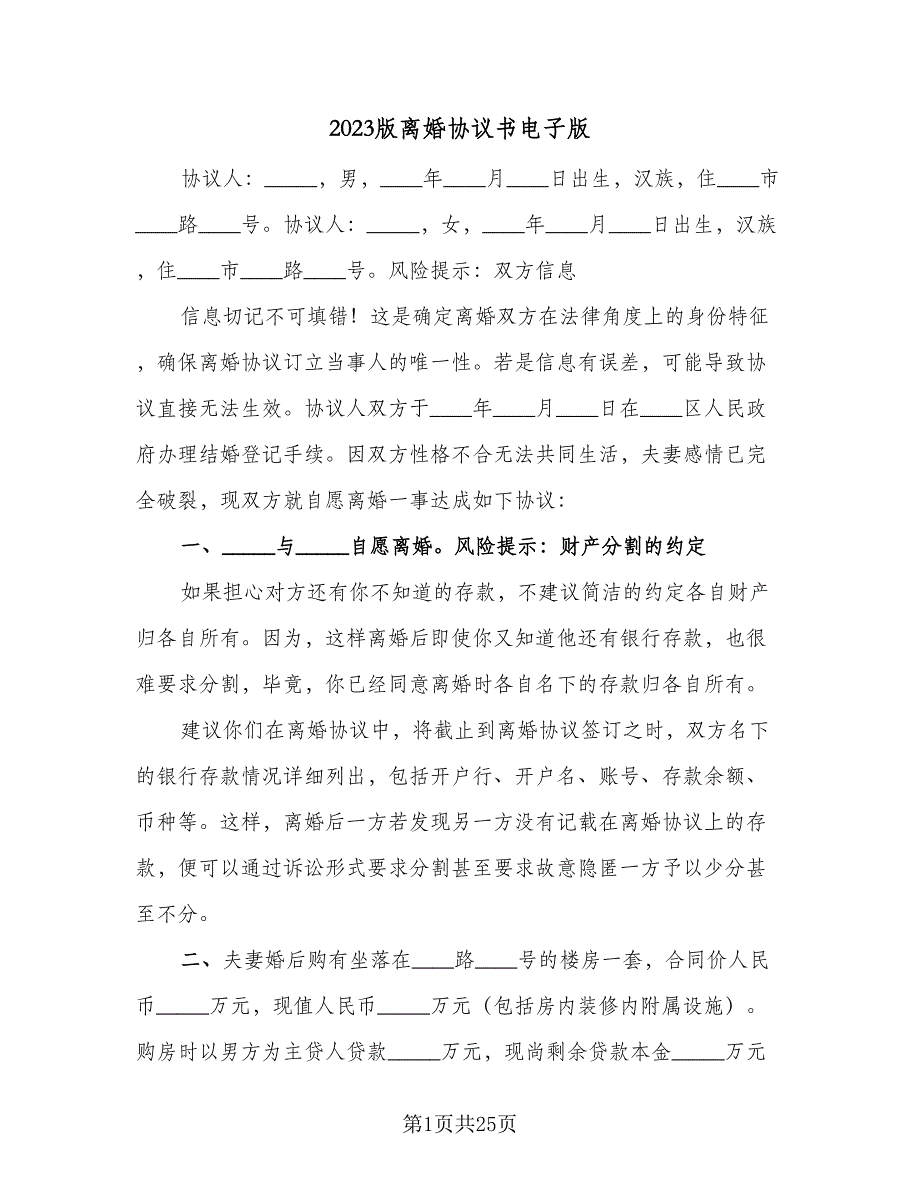 2023版离婚协议书电子版
协议人：_____，男，____年____月____日出生，汉族，住____市
____路____号。协议人：_____，女，____年____月____日出生，汉族
，住____市____路____号。风险提示：双方信息
信息切记不可填错！这是确定离婚双方在法律角度上的身份特征
，确保离婚协议订立当事人的唯一性。若是信息有误差，可能导致协
议直接无法生效。协议人双方于____年____月____日在____区人民政
府办理结婚登记手续。因双方性格不合无法共同生活，夫妻感情已完
全破裂，现双方就自愿离婚一事达成如下协议：
一、_____与_____自愿离婚。风险提示：财产分割的约定
如果担心对方还有你不知道的存款，不建议简洁的约定各自财产
归各自所有。因为，这样离婚后即使你又知道他还有银行存款，也很
难要求分割，毕竟，你已经同意离婚时各自名下的存款归各自所有。
建议你们在离婚协议中，将截止到离婚协议签订之时，双方名下
的银行存款情况详细列出，包括开户行、开户名、账号、存款余额、
币种等。这样，离婚后一方若发现另一方没有记载在离婚协议上的存
款，便可以通过诉讼形式要求分割甚至要求故意隐匿一方予以少分甚
至不分。
二、夫妻婚后购有坐落在____路____号的楼房一套，合同价人民
币_____万元，现值人民币_____万元（包括房内装修内附属设施）。
购房时以男方为主贷人贷款_____万元，现尚剩余贷款本金_____万元
第1页共25页